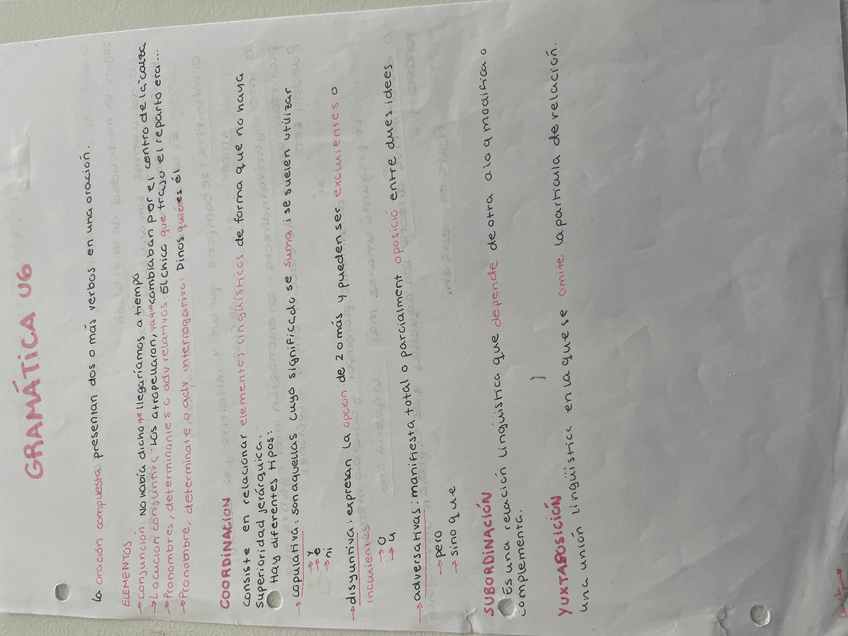 GRAMÁTICA U6
La oración compuesta presentan dos o más verbos en una oración.
ELEMENTOS
→ conjunción: No había dicho que llegaríamos a tiempo
→ Locución conjuntiva: Los atropellaron, ya que cambiaban por el centro de la calta
→ Pronombres, determinantes o adv relativos: El chico que trajo el reparto era...
→ Pronombre, determinate o adv, interrogativo: Dinos quieres él
COORDINACIÓN
consiste en relacionar elementes lingüísticos de forma que no haya
superioridad jerárquica.
Hay diferentes tipos:
→ copulativa: son aquellas cuyo significado se suma i se suelen utilizar
→ y
→ e
→ ni
→ disyuntiva: expresan la opción de 2 o más y pueden ser excluientes o
incluientes
→ o
→ u
→ adversativas: manifiesta total o parcialment oposició entre dues idees
→ pero
→ sino que
SUBORDINACIÓN
Es una relación lingüística que depende de otra a la q modifica o
complementa.
YUXTAPOSICIÓN
una unión lingüística en la que se omite la partícula de relación.